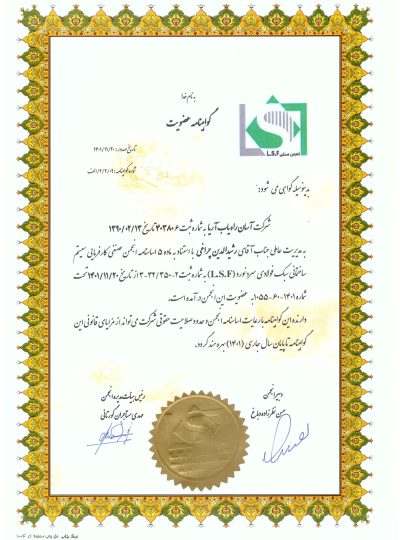 به نام خدا
گواهینامه عضویت
تاریخ صدور: ۱۴۰۱/۱۱/۲۰
شماره گواهینامه: ۱۴/۲/۰۹/الف
انجمن صنفی L.S.F
بدینوسیله گواهی می شود:
شرکت آسان راه یاب آریا به شماره ثبت ۴۰۳۸۰۶ تاریخ ۱۳۹۰/۰۲/۱۳
به مدیریت عاملی جناب آقای رشیدالدین چراغی با استناد به ماده ۵ اساسنامه انجمن صنفی کارفرمایی سیستم
ساختمانی سبک فولادی سرد نورد (L.S.F) به شماره ثبت ۲-۳۵۰/۳۲-۳ از تاریخ ۱۴۰۱/۱۱/۲۰ تحت
شماره ۱۴۰۱-۶۰-۱۰۵۵ به عضویت این انجمن درآمده است.
دارنده این گواهینامه با رعایت اساسنامه انجمن و حدود صلاحیت حقوقی شرکت می تواند از مزایای قانونی این
گواهینامه تا پایان سال جاری (۱۴۰۱) بهره مند گردد.
دبیر انجمن
حسن نظرزاده دباغ
رئیس هیات مدیره انجمن
مهدی مستأجران گورتانی